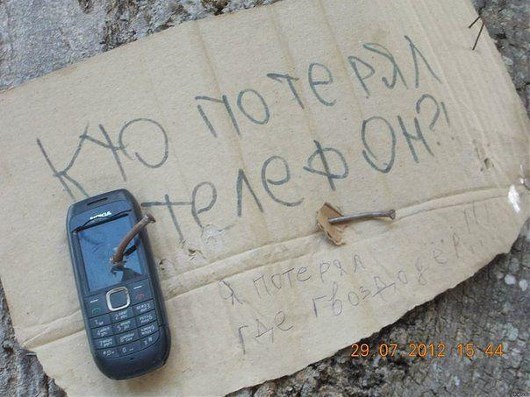 Кто потерял
телефон?!
NOKIA
Я потерял
где гвоздодёр!!!
29.07.2012 15:44